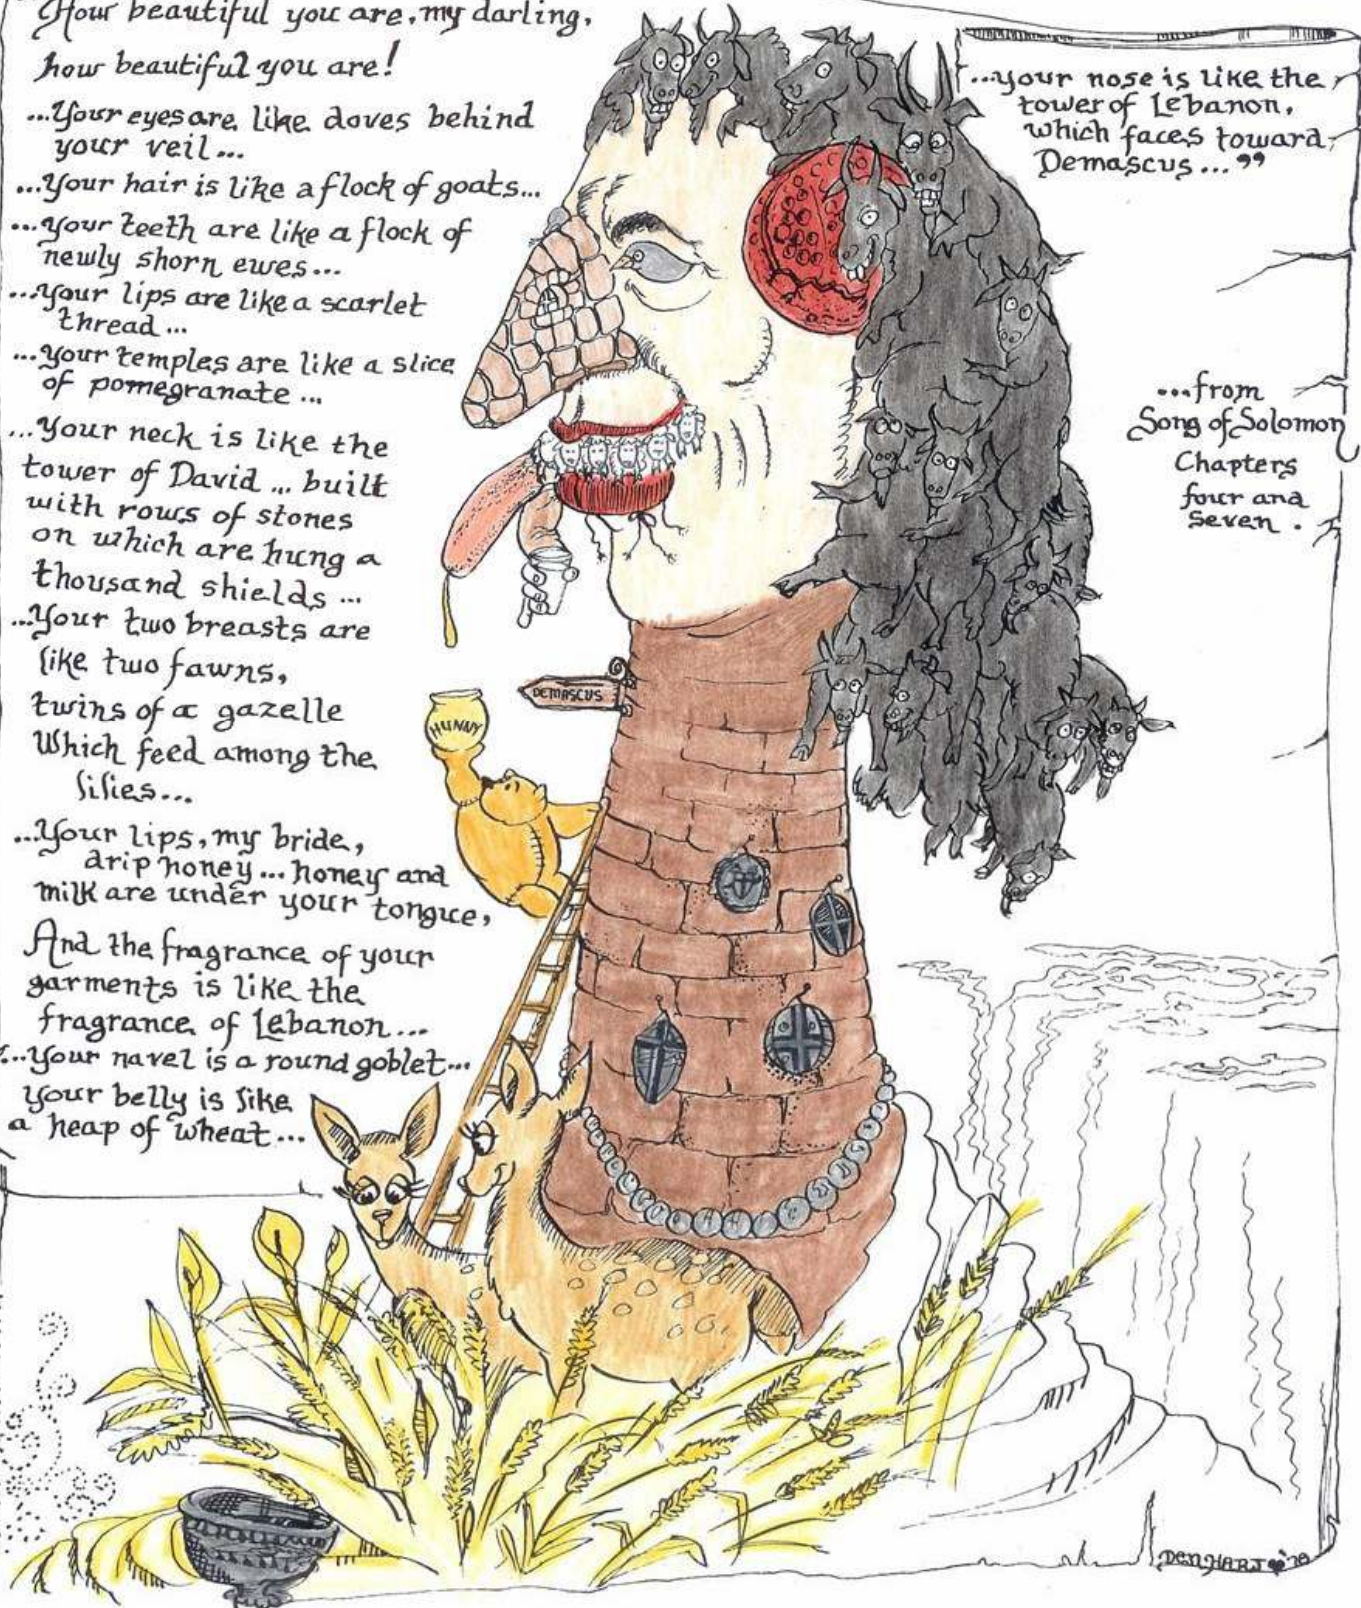 How beautiful you are, my darling,
how beautiful you are!
...Your eyes are like doves behind
your veil...
...Your hair is like a flock of goats...
...your teeth are like a flock of
newly shorn ewes...
...Your lips are like a scarlet
thread...
...your temples are like a slice
of pomegranate...
...Your neck is like the
tower of David... built
with rows of stones
on which are hung a
thousand shields...
...Your two breasts are
like two fawns,
twins of a gazelle
Which feed among the
lilies...
...Your lips, my bride,
drip honey... honey and
milk are under your tongue,
And the fragrance of your
garments is like the
fragrance of Lebanon...
...Your navel is a round goblet...
your belly is like
a heap of wheat...
...your nose is like the
tower of Lebanon,
which faces toward
Demascus..."
...from
Song of Solomon
Chapters
four and
seven.
DEMASCUS
HUNNY
DEN HART